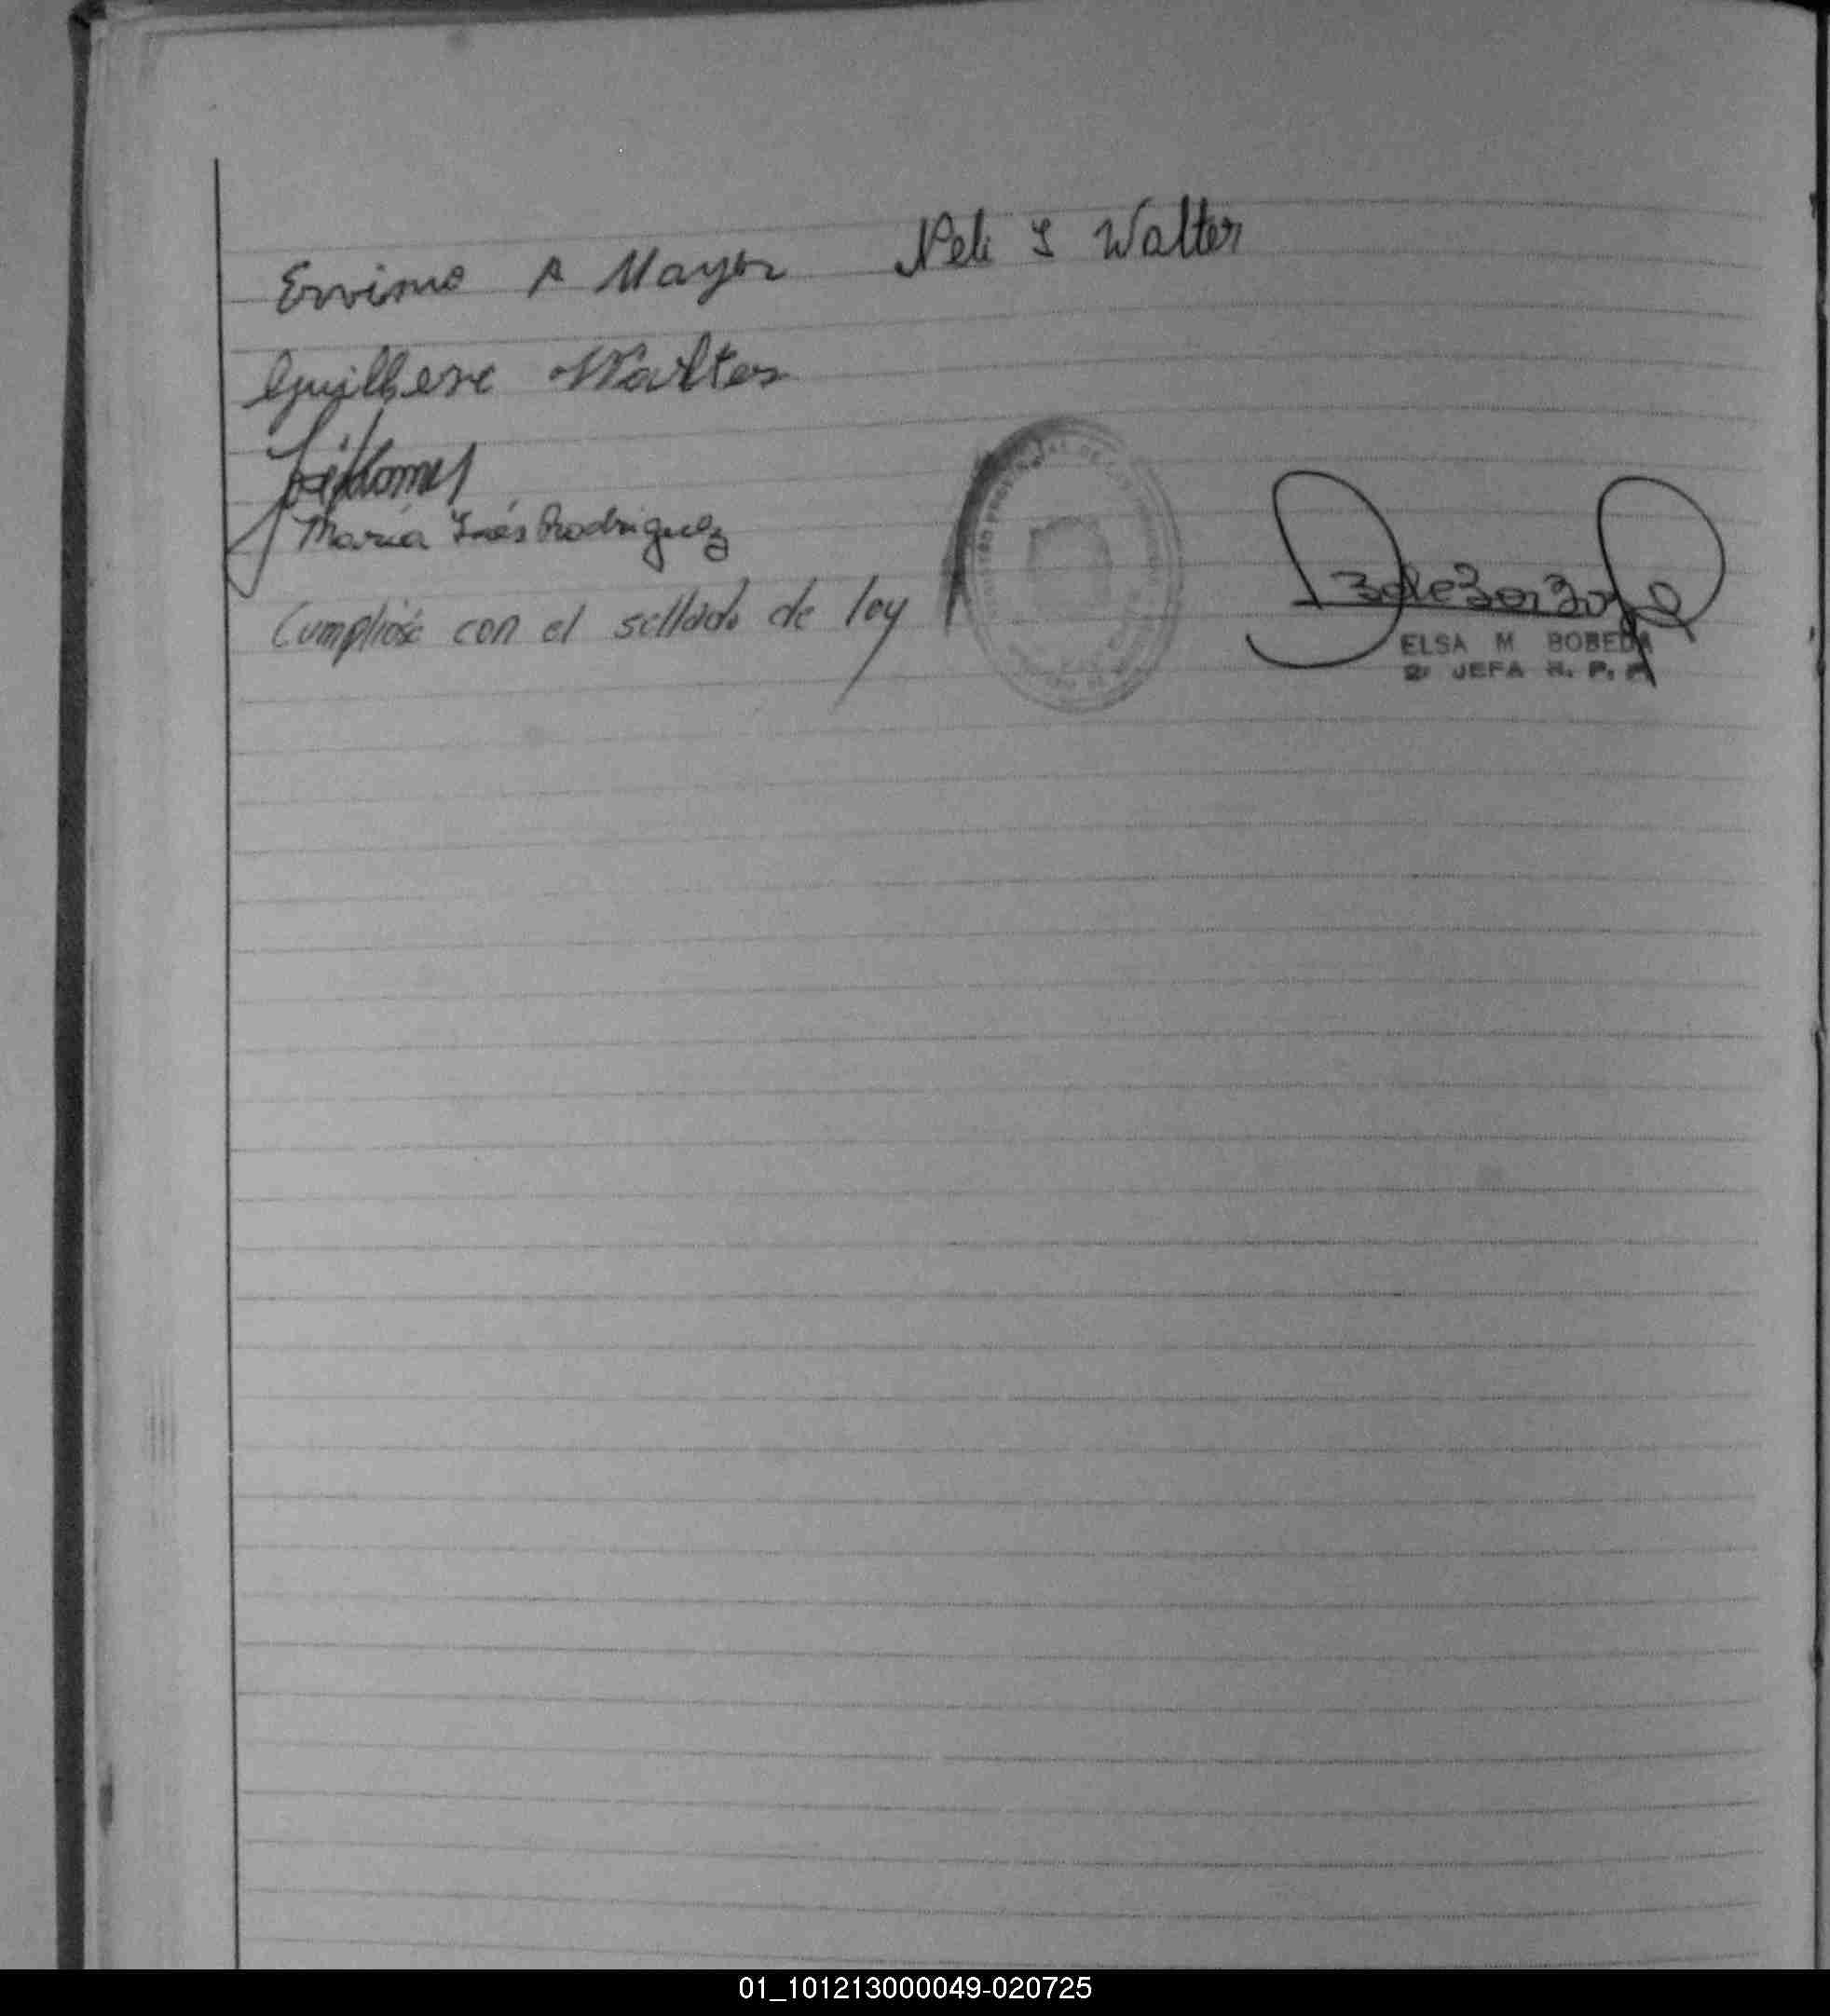 Ervino A Mayer Neli I Walter
Guilherme Walter
María Inés Rodriguez
Cumplióse con el sellado de ley
ELSA M BOBEDA
JEFA R. P. P
01_101213000049-020725